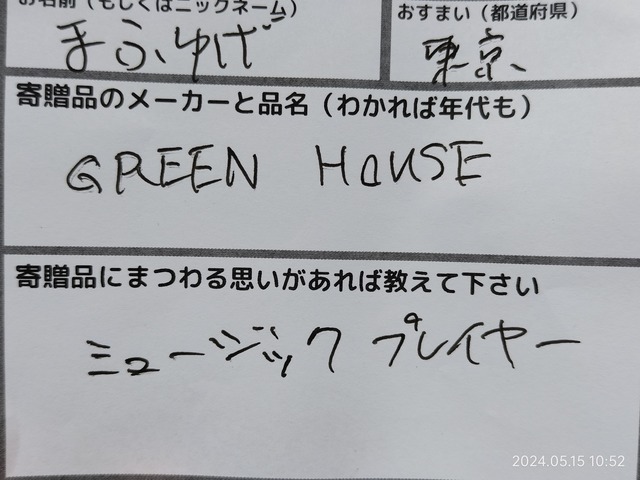 お名前（もしくはニックネーム）
おすまい（都道府県）
まふゆげ
東京
寄贈品のメーカーと品名（わかれば年代も）
GREEN HOUSE
寄贈品にまつわる思いがあれば教えて下さい
ミュージックプレイヤー
2024.05.15 10:52